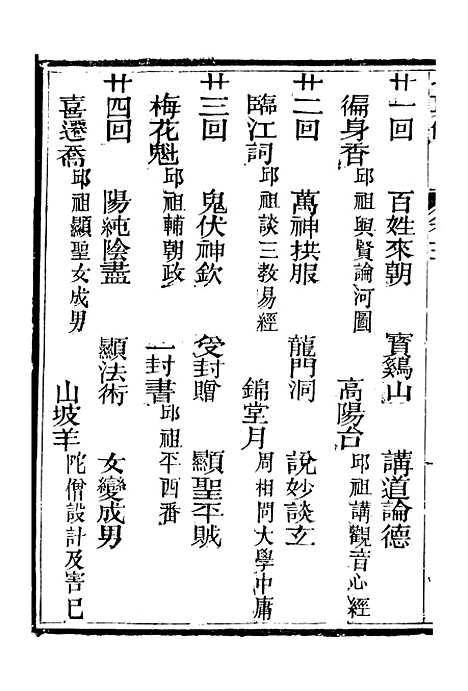 廿一回 百姓來朝 寳鷄山 講道論德
徧身香 邱祖與賢論河圖 高陽台 邱祖講觀音心經
廿二回 萬神拱服 龍門洞 説妙談玄
臨江詞 邱祖談三教易經 錦堂月 周相問大學中庸
廿三回 鬼伏神欽 受封贈 顯聖平賊
梅花魁 邱祖輔朝政 一封書 邱祖平西番
廿四回 陽純陰盡 顯法術 女變成男
喜遷喬 邱祖顯聖女成男 山坡羊 陀僧設計及害已